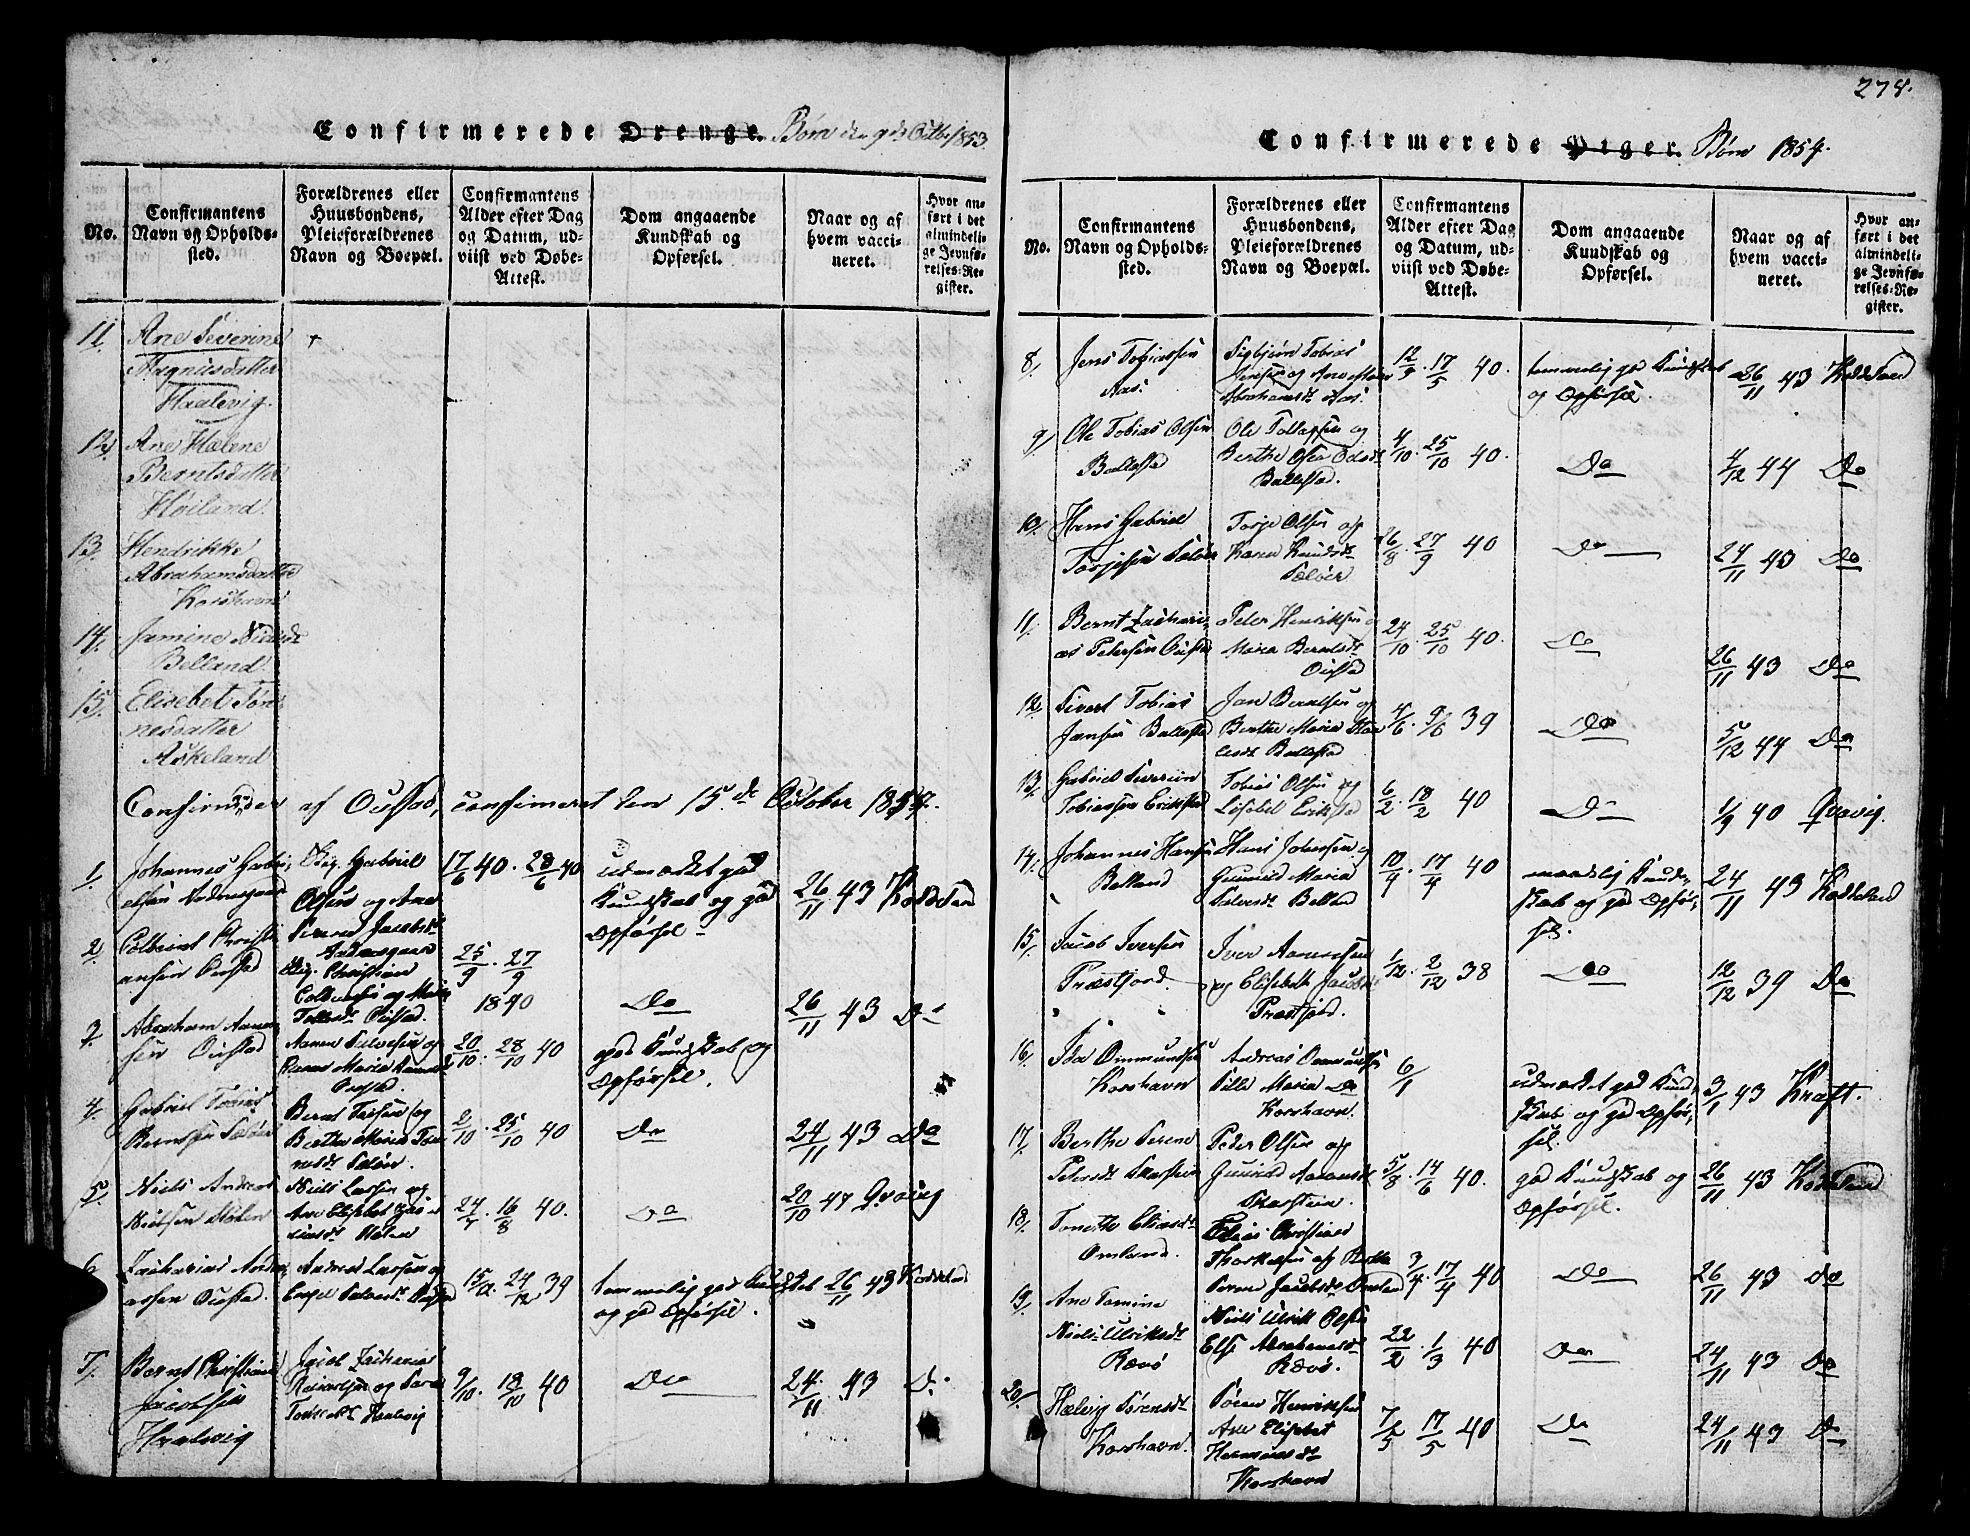 278.
Confirmerede Drenge. Børn den 9de Octbr 1853.
No.
Confirmantens Navn og Opholdssted.
Forældrenes eller Huusbondens, Pleieforældrenes Navn og Boepæl.
Confirmantens Alder efter Dag og Datum, udviist ved Døbe-Attest.
Dom angaaende Kundskab og Opførsel.
Naar og af hvem vaccineret.
Hvor anført i det almindelige Jevnførelses-Register.
11. Ane Severine
Magnusdatter
Haalevig.
12. Ane Helene
Berntsdatter
Høiland.
13. Hendrikke
Abrahamsdatter
Korshavn
14. Jamine
Belland.
15. Elisebet Tøn-
nesdatter
Askeland
af Oustad, confirmeret den 15de October 1854.
1. Johannes Gabri-
elsen
Gabriel
Olsen og Ane
17/6 40. 28/6 40
udmærket god
Kundskab og god
Opførsel
26/11 43 Koddeland
2.
ansen Oustad
Christian
25/9. 27/9
1840
Do
26/11 43 Do
3. Abraham Aanen-
sen Oustad
Aanen Salvesen og
Oustad.
20/10. 28/10 40
god Kundskab og
Opførsel.
4. Gabriel Tobias
Berntsen Sælør
Bernt
Berthe Marie
Sælør.
2/10. 25/10 40
Do
24/11 43 Do
5. Niels Andreas
Nielsen
Niels Larsen og
Ane Elisebet
16/8 40.
Do
20/10 44 Qvavig
6. Zacharias Andre-
assen Oustad.
Andreas Larsen og
Engel Salvesdt Oustad
24/12 39
temmelig god Kundskab
og god Opførsel.
26/11 43 Koddeland
7. Bernt Christian
Jacobsen
Haalevig
Jacob Zacharias
Haalevig
9/10. 18/10 40
Do
24/11 43 Do
Confirmerede Piger. Børn 1854.
No.
Confirmantens Navn og Opholdssted.
Forældrenes eller Huusbondens, Pleieforældrenes Navn og Boepæl.
Confirmantens Alder efter Dag og Datum, udviist ved Døbe-Attest.
Dom angaaende Kundskab og Opførsel.
Naar og af hvem vaccineret.
Hvor anført i det almindelige Jevnførelses-Register.
8. Jens Tobiassen
Aas.
Sigbjørn Tobias
Jensen og Ane Marie
Abrahamsdt Aas.
17/5 40.
temmelig god Kundskab
og Opførsel.
26/11 43 Koddeland
9. Ole Tobias Olsen
Ballestad
Ole Tollagsen og
Berthe
Ballestad.
4/10. 25/10 40.
Do
4/12 44 Do
10. Hans Gabriel
Torjesen Sælør
Torje Olsen og
Karen Knudsdt
Sælør
26/8. 27/9 40
Do
24/11 43 Do
11. Bernt Zachari-
as Petersen Oustad
Peter Henriksen og
Maria Berntsdt
Oustad
24/10. 25/10 40.
Do
26/11 43 Do
12. Sivert Tobias
Jansen Ballestad
Jan Berntsen og
Berthe Maria
Ballestad
4/6. 9/6 39
Do
5/12 44 Do
13. Gabriel Severin
Tobiassen Erikstad
Tobias Olsen og
Lisebet Erikstad
6/2. 18/2 40
Do
1/9 40 Qvavig.
14. Johannes Hansen
Belland
Hans Johnsen og
Gunnild Maria
Salvesdt Belland
10/4. 17/4 40
maadelig Kund-
skab og god Opfør-
sel.
24/11 43 Koddeland
15. Jacob Iversen
Præstfjord.
Iver Aanensen
og Elisebeth Jacobsdt
Præstfjord.
1/12. 2/12 38
Do
12/12 39 Do
16. Ommundsen
Korshavn
Andreas Ommundsen
Sille Maria Do
Korshavn.
6/1
udmærket god Kund-
skab og god Opfør-
sel.
3/1 43 Kraft.
17. Berthe Serene
Petersdt Skarstein
Peder Olsen og
Gunild Aanensdt
Skarstein.
5/8. 14/6 40.
god Kundskab og
Opførsel.
26/11 43 Koddeland
18. Tomette Eliasdt
Omland.
Elias Christian
Thorkelsen og Berthe
Serene Jacobsdt Omland
3/4. 17/4 40
Do
26/11 43 Do
19. Ane Tomine
Niels Ulriksdt
Rævø
Niels Ulrik Olsen
Else Abrahamsdt
Rævø.
22/2. 1/3 40
Do
24/11 43 Do
20. Helvig Sørensdt
Korshavn.
Søren Henriksen
Ane Elisebet
Korshavn
7/5. 17/5 40
Do
24/11 43 Do